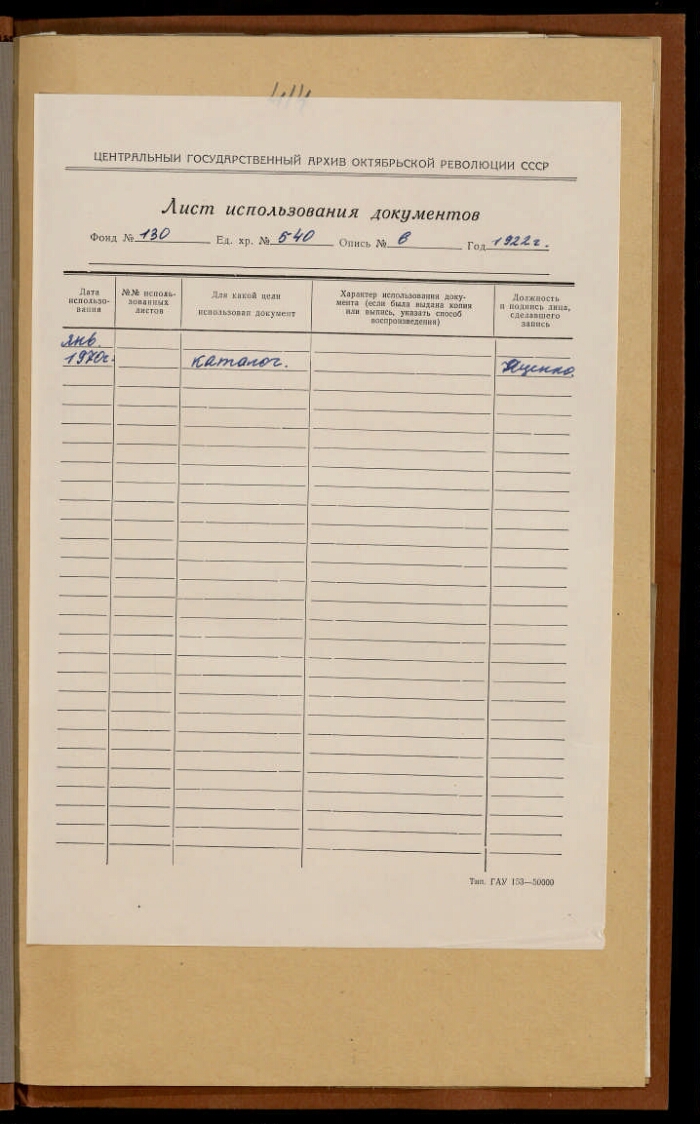 414
ЦЕНТРАЛЬНЫЙ ГОСУДАРСТВЕННЫЙ АРХИВ ОКТЯБРЬСКОЙ РЕВОЛЮЦИИ СССР
Лист использования документов
Фонд № 130 Ед. хр. № 540 Опись № 6 Год 1922 г.
Дата использования
№№ использованных листов
Для какой цели использован документ
Характер использования документа (если была выдана копия или выпись, указать способ воспроизведения)
Должность и подпись лица, сделавшего запись
янв.
1970г. каталог. Яценко
Тип. ГАУ 153—50000